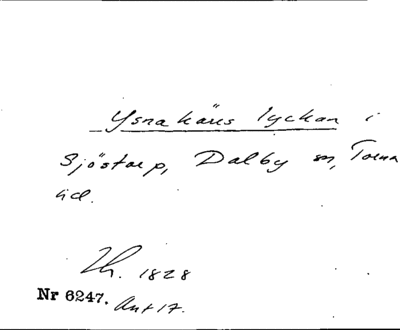 Ysnakärs lyckan i
Sjöstorp, Dalby sn, Torna
hd.
Th. 1828
Nr 6247. Ant 17.